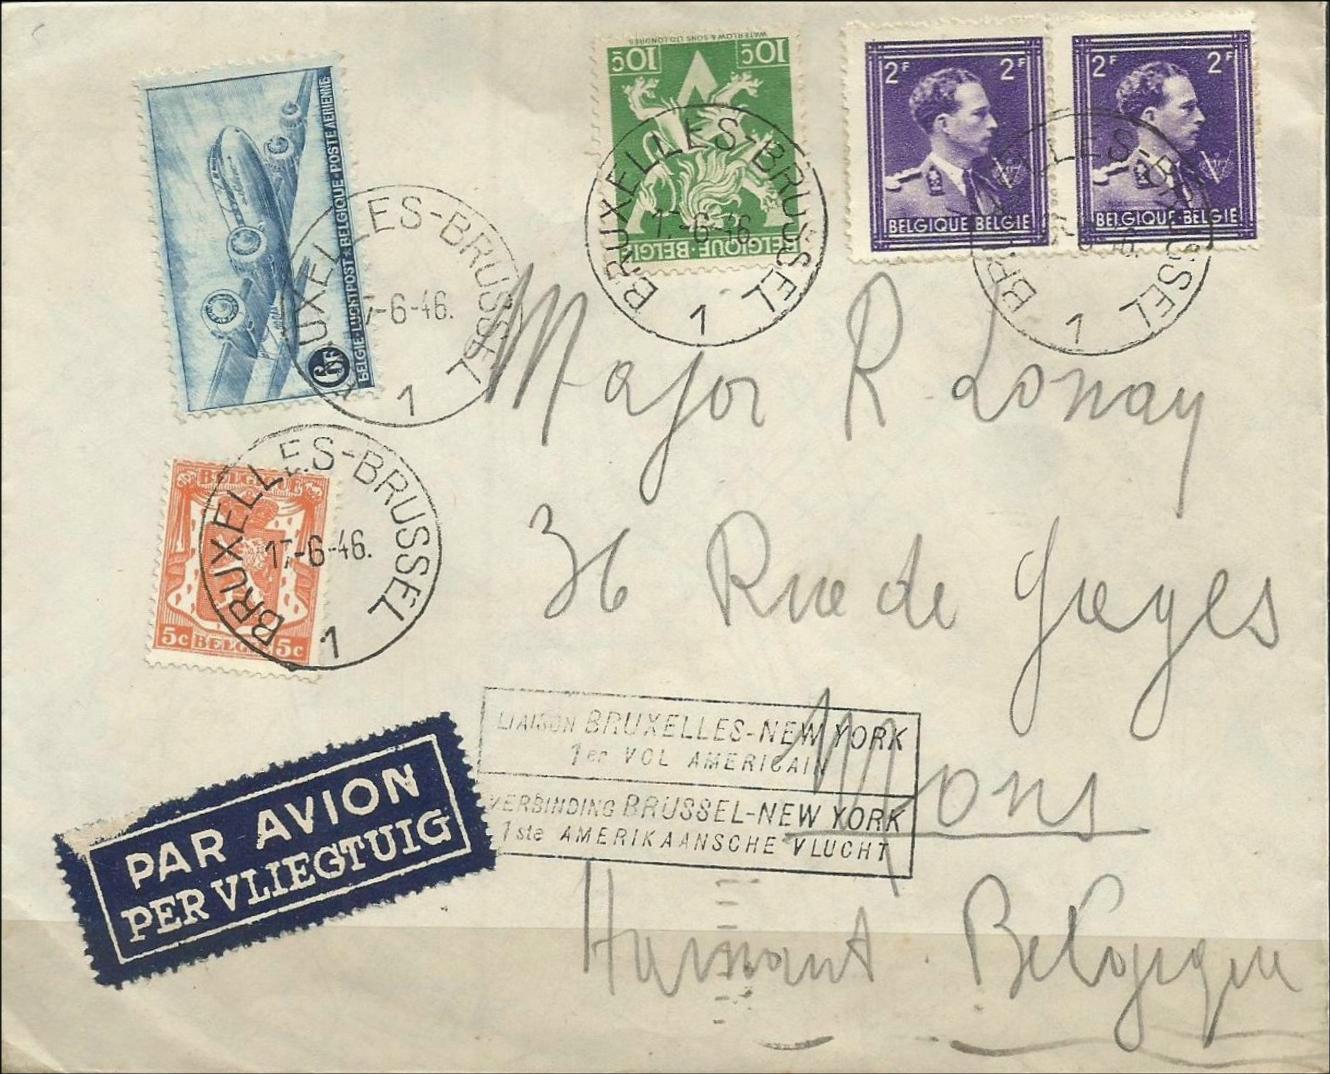 BELGIE-LUCHTPOST-BELGIQUE-POSTE AERIENNE
6F
BRUXELLES-BRUSSEL
17-6-46.
1
WATERLOW & SONS LTD. LONDRES
10c 10c
BELGIQUE-BELGIE
BRUXELLES-BRUSSEL
17-6-46
1
2F 2F
BELGIQUE-BELGIE
2F 2F
BELGIQUE-BELGIE
BRUXELLES-BRUSSEL
1
BELGIQUE
5c BELGIE 5c
BRUXELLES-BRUSSEL
17-6-46.
1
Major R. Lonay
36 Rue de
Mons
Hainaut. Belgique
LIAISON BRUXELLES-NEW YORK
1er VOL AMERICAIN
VERBINDING BRUSSEL-NEW YORK
1ste AMERIKAANSCHE VLUCHT
PAR AVION
PER VLIEGTUIG